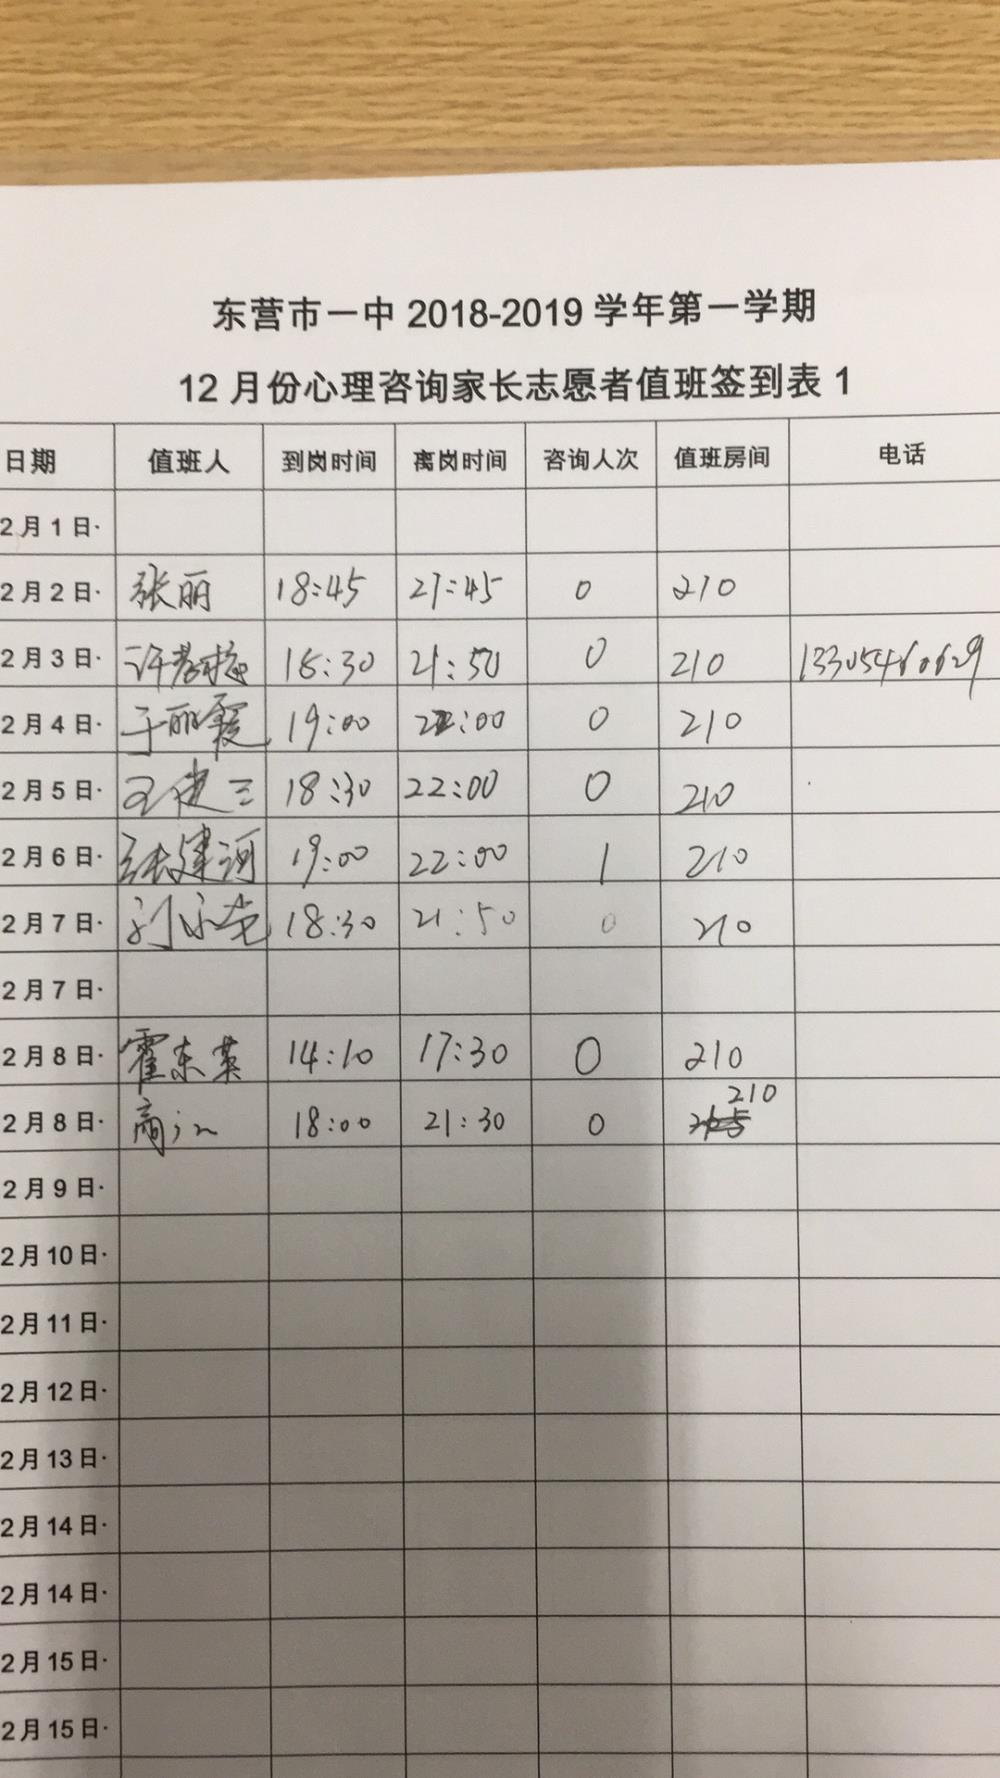 东营市一中 2018-2019 学年第一学期
12 月份心理咨询家长志愿者值班签到表 1
日期 值班人 到岗时间 离岗时间 咨询人次 值班房间 电话
2月1日·
2月2日· 张丽 18:45 21:45 0 210
2月3日· 21:50 0 210 13305460629
2月4日· 于丽霞 19:00 22:00 0 210
2月5日· 王建三 18:30 22:00 0 210
2月6日· 张建河 19:00 22:00 1 210
2月7日· 18:30 21:50 0 210
2月7日·
2月8日· 霍东英 14:10 17:30 0 210
210
2月8日· 18:00 21:30 0
2月9日·
2月10日·
2月11日·
2月12日·
2月13日·
2月14日·
2月14日·
2月15日·
2月15日·